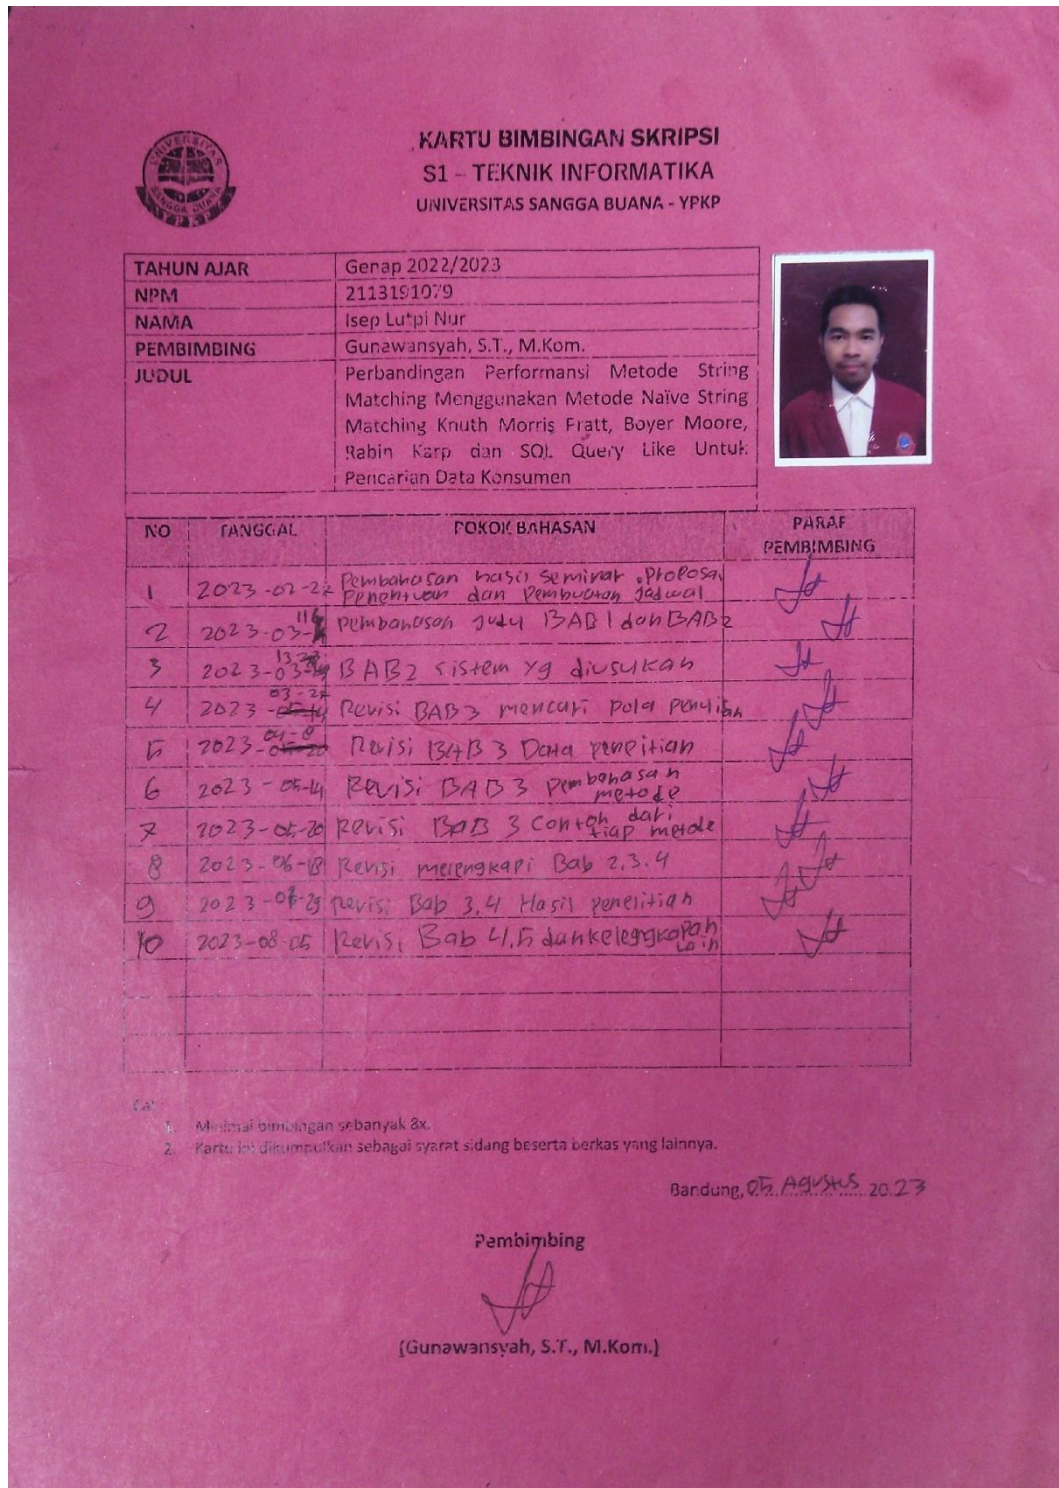 UNIVERSITAS
SANGGA BUANA
YPKP
KARTU BIMBINGAN SKRIPSI
S1 – TEKNIK INFORMATIKA
UNIVERSITAS SANGGA BUANA - YPKP
TAHUN AJAR Genap 2022/2023
NPM 2113191079
NAMA Isep Lutpi Nur
PEMBIMBING Gunawansyah, S.T., M.Kom.
JUDUL Perbandingan Performansi Metode String
Matching Menggunakan Metode Naïve String
Matching Knuth Morris Pratt, Boyer Moore,
Rabin Karp dan SQL Query Like Untuk
Pencarian Data Konsumen
NO TANGGAL POKOK BAHASAN PARAF
PEMBIMBING
1 2023-02-22 Pembahasan hasil seminar proposal
Penentuan dan Pembuatan jadwal
2 2023-03- Pembahasan judul BAB 1 dan BAB 2
3 2023- BAB 2 sistem yg diusulkan
4 2023-03- Revisi BAB 3 mencari pola
5 2023-04- Revisi BAB 3 Data peneitian
6 2023-05-14 Revisi BAB 3 Pembahasan
metode
7 2023-05-20 Revisi BAB 3 Contoh dari
tiap metode
8 2023-06-18 Revisi melengkapi Bab 2.3.4
9 2023- -29 Revisi Bab 3,4 Hasil penelitian
10 2023-08-05 Revisi Bab 4,5 dan
lain
Cat
1. Minimal bimbingan sebanyak 8x.
2. Kartu ini dikumpulkan sebagai syarat sidang beserta berkas yang lainnya.
Bandung, 05 Agustus 2023
Pembimbing
(Gunawansyah, S.T., M.Kom.)